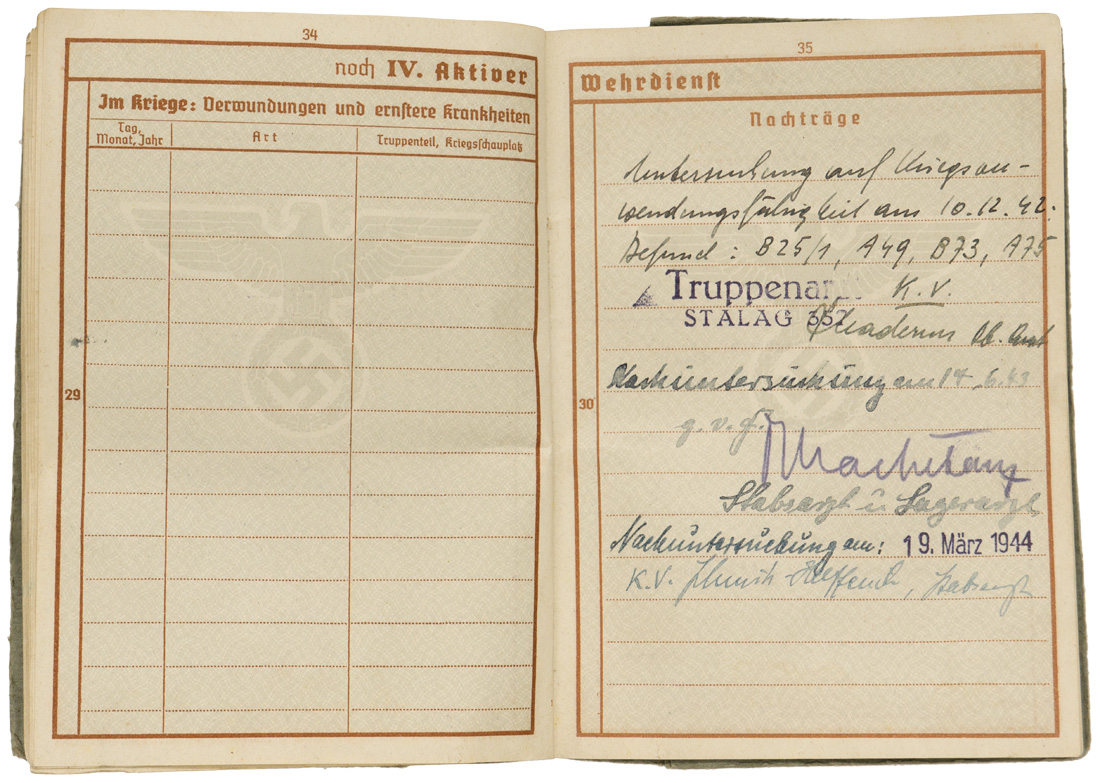 34
noch IV. Aktiver
Im Kriege: Verwundungen und ernstere Krankheiten
Tag, Monat, Jahr
Art
Truppenteil, Kriegsschauplatz
29
35
Wehrdienst
Nachträge
30
Untersuchung auf Kriegsan-
wendungsfähigkeit am 10.12.42.
Befund: B25/1, A49, B73, A75
Truppenar K.V.
STALAG 357
Ob. Arzt
Nachuntersuchung am 14.6.43
g.v.F.
Stabsarzt u Lagerarzt
Nachuntersuchung am: 19. März 1944
K.V. Stabsarzt